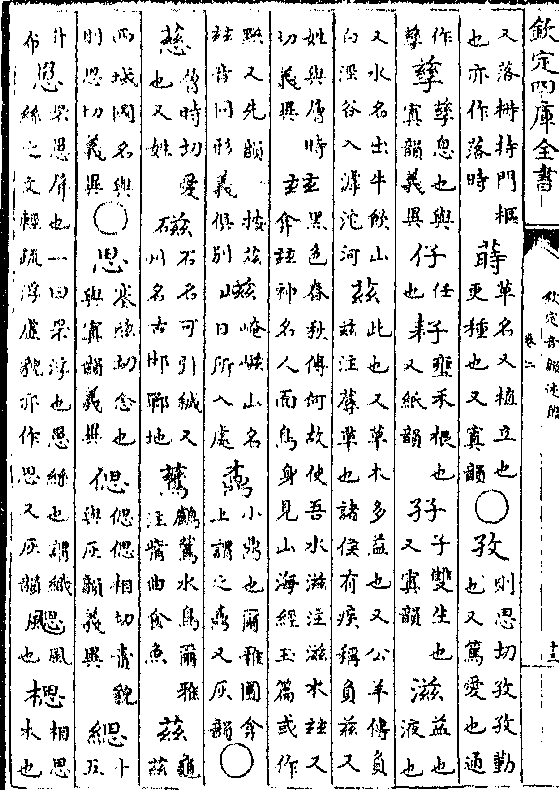 欽定四庫全書
欽定音韻述微
卷二
又落樹持門樞
也亦作落時
蒔
草名又植立也
更種也又寘韻
○孜
則思切孜孜勤
也又篤愛也通
作
孳
孳
孳息也與
寘韻義異
仔
任
也
耔
壅禾根也
又紙韻
孖
子雙生也
又寘韻
滋
益也
液也
又水名出牛飲山
白涇谷入滹沱河
兹
此也又草木多益也又公羊傳負
兹注蓐草也諸侯有疾稱負兹又
姓與傳時
切義異
玆
黑色春秋傳何故使吾水滋注滋水玆又
弇玆神名人面鳥身見山海經玉篇或作
黝又先韻按兹
玆音同形義俱別
嵫
崦嵫山名
日所入處
鼒
小鼎也爾雅圜弇
上謂之鼒又灰韻
○
慈
傳時切愛
也又姓
磁
石名可引鍼又
州名古邯鄲地
鶿
鸕鶿水鳥爾雅
注觜曲食魚
兹
龜
兹
西域國名與
則思切義異
○思
塞緦切念也
與寘韻義異
偲
偲偲相切責貌
與灰韻義異
緦
十
五
升
布
罳
罘罳屏也一曰罘浮也罳絲也謂織
絲之文輕疏浮虛貌亦作思又灰韻
颸
風
也
楒
相思
木也